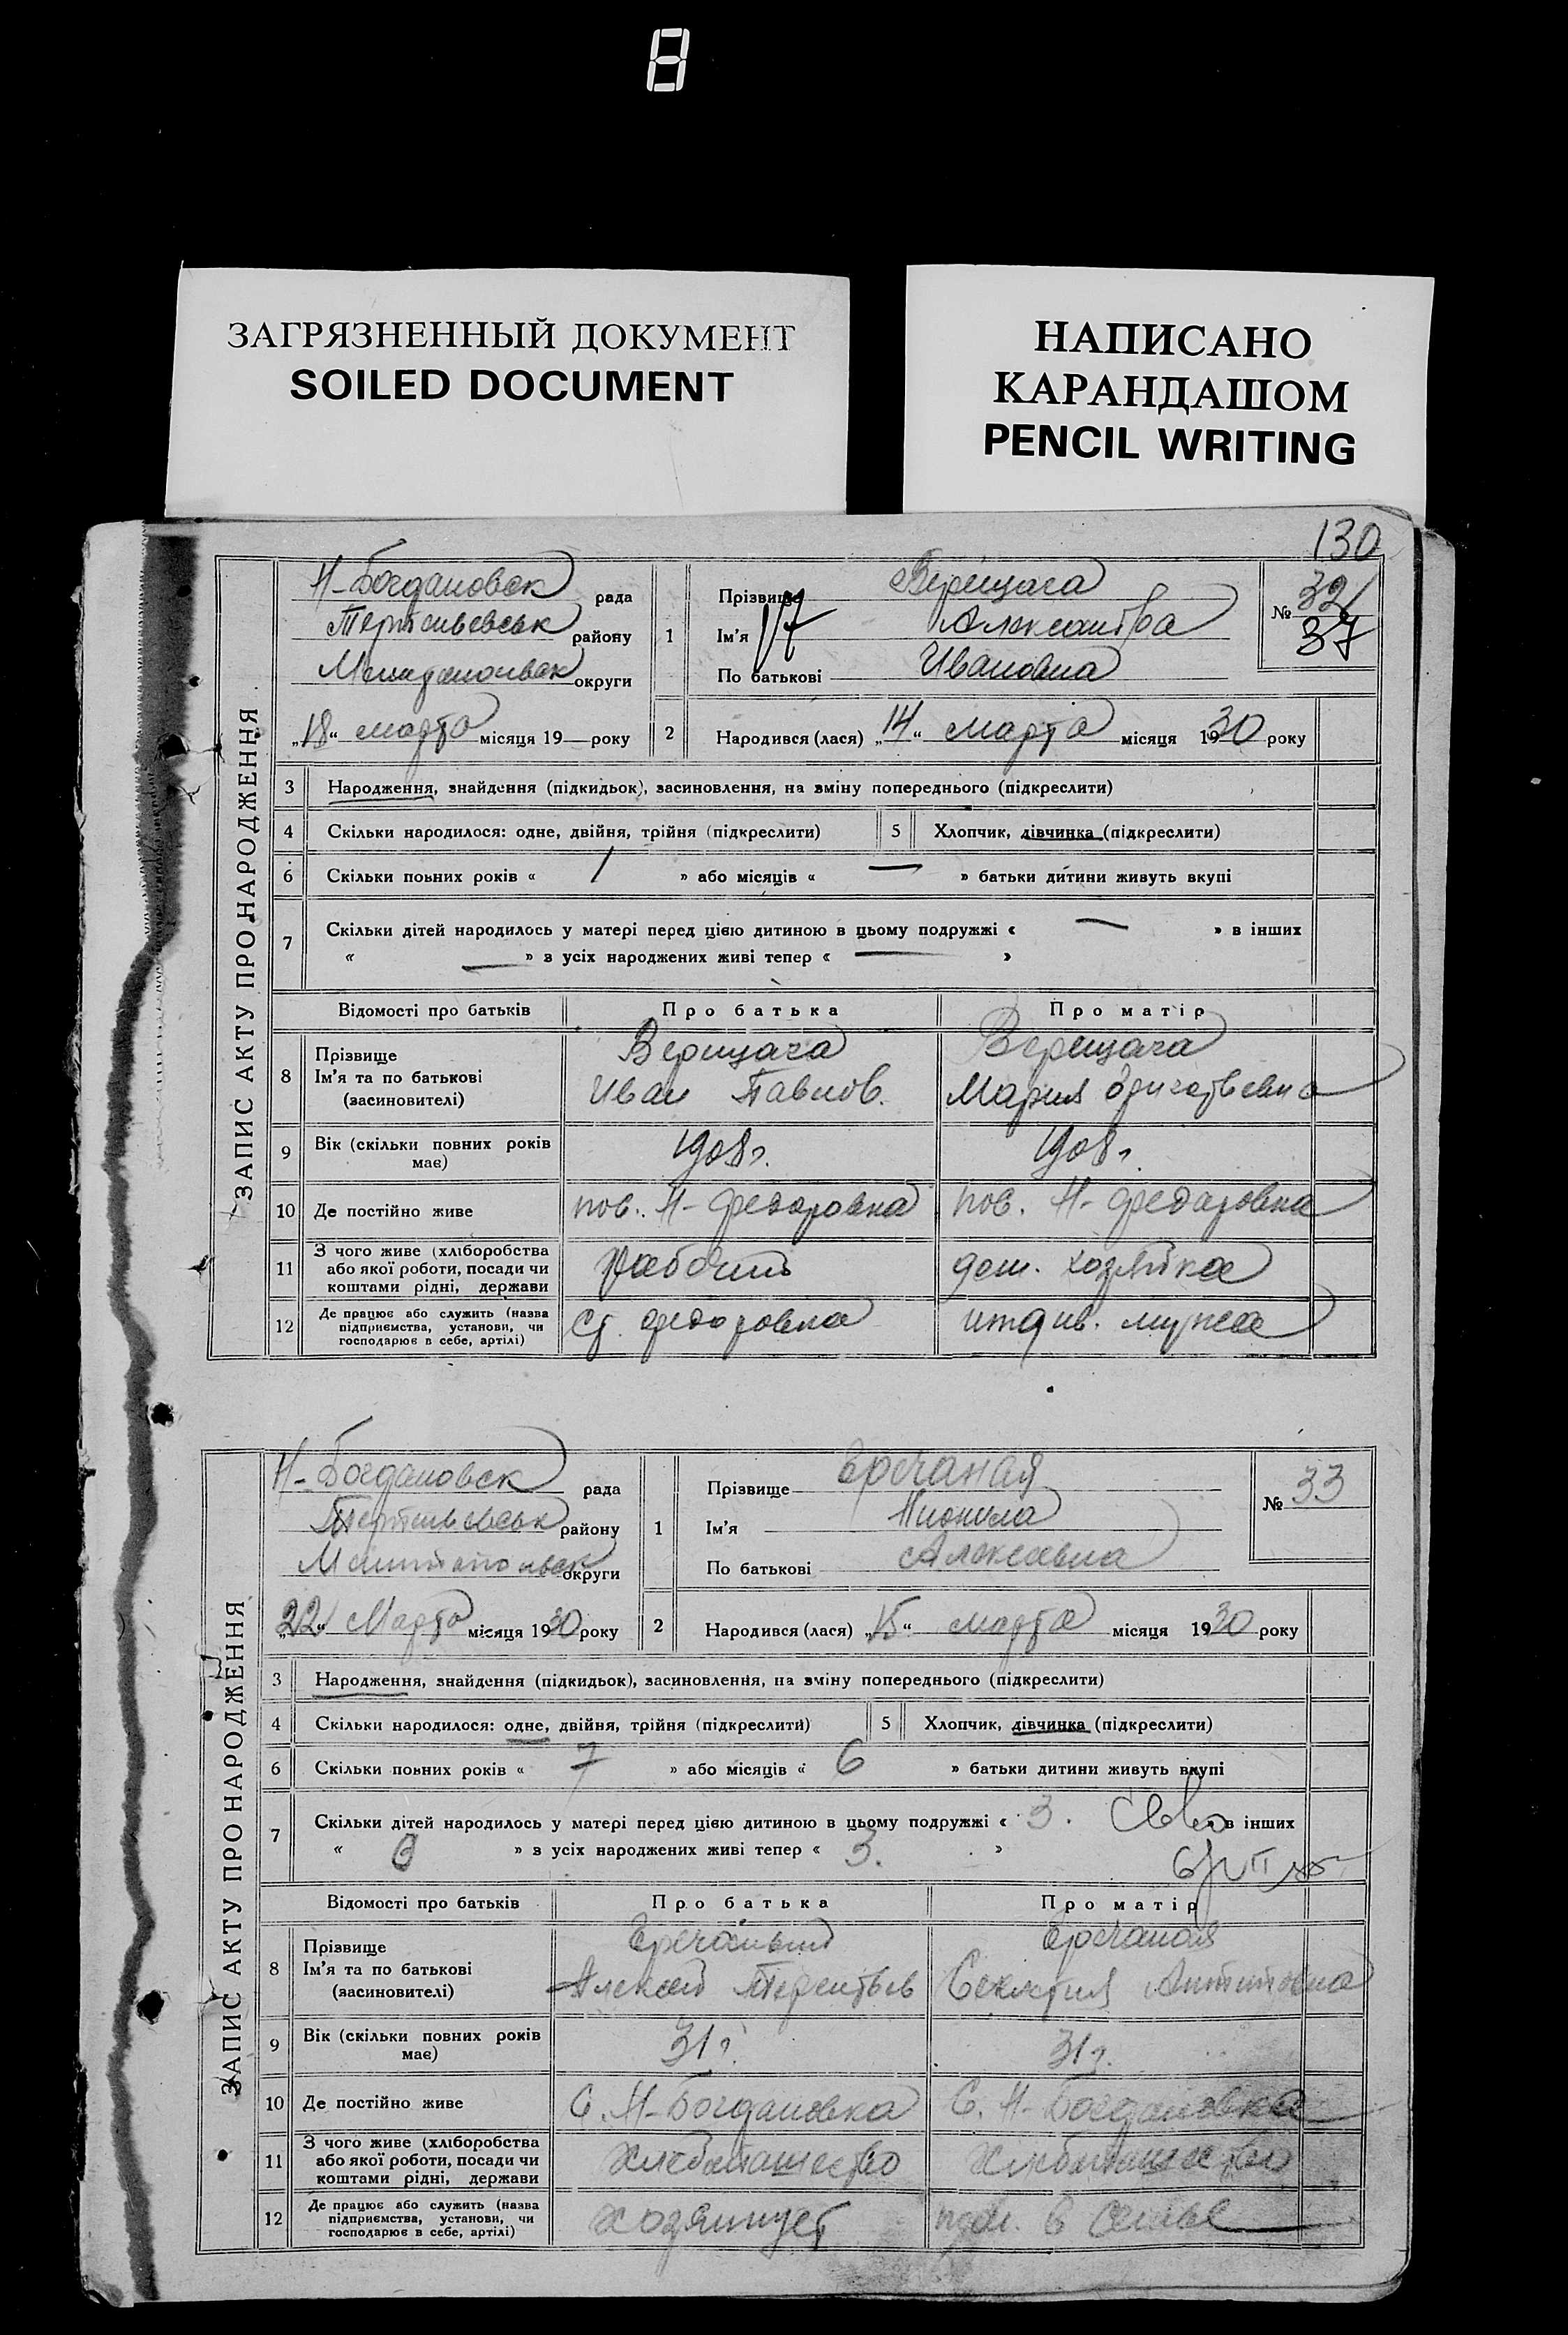 8
ЗАГРЯЗНЕННЫЙ ДОКУМЕНТ
SOILED DOCUMENT
НАПИСАНО
КАРАНДАШОМ
PENCIL WRITING
130
ЗАПИС АКТУ ПРО НАРОДЖЕННЯ
Н-Богдановск рада
району
округи
„18“ марта місяця 19 року
1 Прізвище Верещага
Ім'я Александра
По батькові Ивановна
№ 32
37
2 Народився (лася) „14“ марта місяця 1930 року
3 Народження, знайдення (підкидьок), засиновлення, на зміну попереднього (підкреслити)
4 Скільки народилося: одне, двійня, трійня (підкреслити) 5 Хлопчик, дівчинка (підкреслити)
6 Скільки повних років « 1 » або місяців « — » батьки дитини живуть вкупі
7 Скільки дітей народилось у матері перед цією дитиною в цьому подружжі « — » в інших
« — » з усіх народжених живі тепер « — »
Відомості про батьків Про батька Про матір
8 Прізвище Верещага Верещага
Ім'я та по батькові Иван Павлов. Мария
(засиновителі)
9 Вік (скільки повних років має) 1908 г. 1908 г.
10 Де постійно живе пос. Н-Федоровка пос. Н-Федоровка
11 З чого живе (хліборобства або якої роботи, посади чи коштами рідні, держави рабочий дом. хозяйка
12 Де працює або служить (назва підприємства, установи, чи господарює в себе, артілі) ст. Федоровка иждив. мужа
ЗАПИС АКТУ ПРО НАРОДЖЕННЯ
Н-Богдановск рада
району
Мелитопольск округи
„22“ Марта місяця 1930 року
1 Прізвище
Ім'я
По батькові Алексеевна
№ 33
2 Народився (лася) „15“ марта місяця 1930 року
3 Народження, знайдення (підкидьок), засиновлення, на зміну попереднього (підкреслити)
4 Скільки народилося: одне, двійня, трійня (підкреслити) 5 Хлопчик, дівчинка (підкреслити)
6 Скільки повних років « 7 » або місяців « 6 » батьки дитини живуть вкупі
7 Скільки дітей народилось у матері перед цією дитиною в цьому подружжі « 3. » в інших
« » з усіх народжених живі тепер « 3. »
Відомості про батьків Про батька Про матір
8 Прізвище
Ім'я та по батькові Алексей Терентьев
(засиновителі)
9 Вік (скільки повних років має) 31 г. 31 г.
10 Де постійно живе С. Н-Богдановка С. Н-Богдановка
11 З чого живе (хліборобства або якої роботи, посади чи коштами рідні, держави хлебопашество хлебопашество
12 Де працює або служить (назва підприємства, установи, чи господарює в себе, артілі) хозяинует в семье